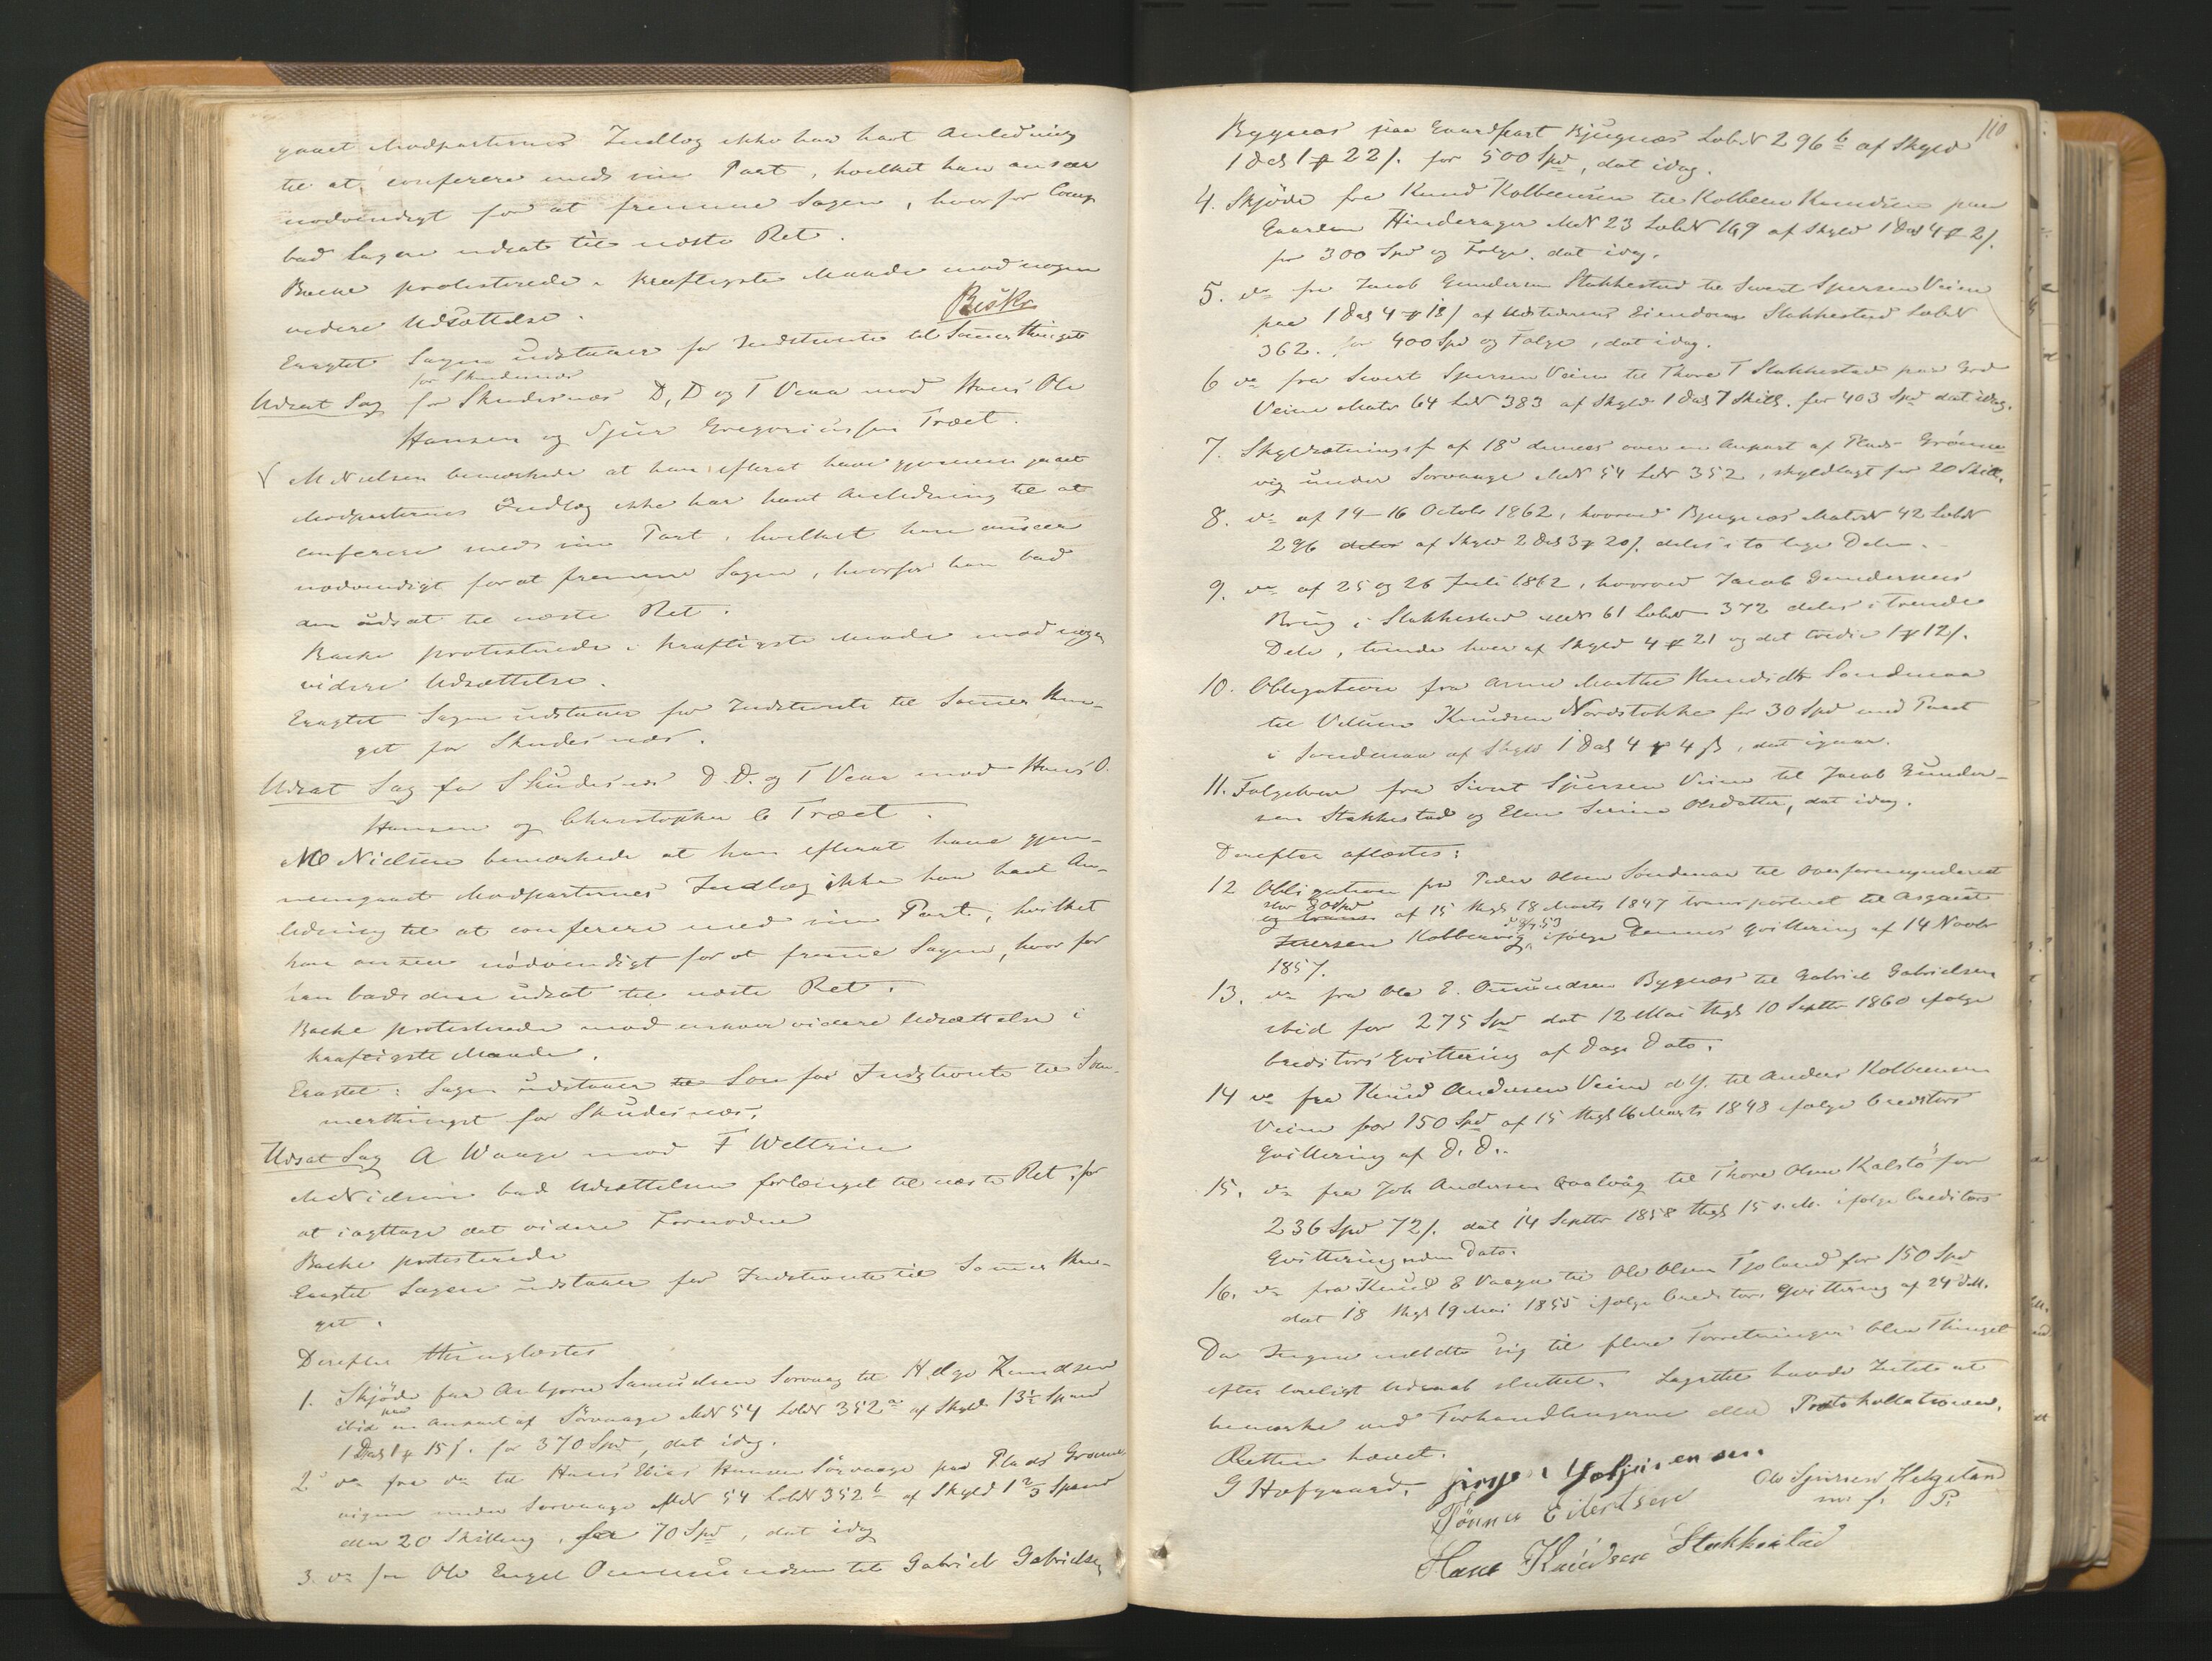 gaaet Modparternes Indlæg ikke har havt Anledning
til at conferere med sin Part, hvilket han anseer
nødvendigt for at fremme Sagen, hvorfor Comp
bad Sagen udsat til næste Ret.
Backe protesterede i kræftigste Maade mod nogen
videre Udsættelse.
Eragtet Sagen udstaaer for Indstevnte til Somerthinget
for Skudesnæs
Udsat Sag for Skudesnæs D, D og T Veaa mod Hans Ole
Hansen og Sjur Gregoriussen Træet.
M Nielsen bemærkede at han efterat have gjennem gaaet
Modparternes Indlæg ikke har havt Anledning til at
conferere med sin Part, hvilket han anseer
nødvendigt for at fremme Sagen, hvorfor han bad
den udsat til næste Ret.
Backe protesterede i kraftigste Maade mod nogen
videre Udsættelse.
Eragtet Sagen udstaaer for Indstevnte til Somer thin-
get for Skudesnæs.
Udsat Sag for Skudesnæs D. D. og T Veaa mod Hans O.
Hansen og Christopher C Træet.
M Nielsen bemærkede at han efterat have gjen-
nemgaaet Modparternes Indlæg ikke har havt An-
ledning til at conferere med sin Part, hvilket
han anseer nödvendigt for at fremme Sagen, hvorfor
han bad den udsat til næste Ret.
Backe protesterede mod enhver videre Udsættelse i
kraftigste Maade.
Eragtet: Sagen udstaaer til Som for Indstevnte til Som-
merthinget for Skudesnæs.
Udsat Sag A Waage mod F Weltzin
M Nielsen bad Udsættelsen forlænget til næste Ret for
at iagttage det videre Fornødne
Backe protesterede
Eragtet Sagen udstaaer for Indstevnte til Somer thin-
get.
Derefter thinglæstes
1. Skjøde fra Anbjørn Samuelsen Sørvaag til Helge Knudsen
ibid paa en Anpart af Sörvaage MN 54 LøbN 352 a af Skyld 13½ Spand
1 Dal 1 15 ſ. for 370 Spd, dat idag.
2 do fra do til Hans Elias Hansen Sørvaage paa Plads Grønne-
vigen under Sørvaage MN 54 LøbN 352 b af Skyld 1 2/3 Spand
eller 20 Skilling, for 70 Spd, dat idag
3. do fra Ole Engel Ommundsen til Gabriel Gabrielsen
110
Bygnæs paa Gaardpart Bjugnæs LøbN 296 b af Skyld
1 Dal 1 22 ſ. for 500 Spd, dat idag.
4. Skjöde fra Knud Kolbeensen til Kolbeen Knudsen paa
Gaarden Hinderager MN 23 LøbN 149 af Skyld 1 Dal 4 2 ſ.
for 300 Spd og Folge, dat idag.
5. do fra Jacob Gundersen Stakkestad til Sivert Sjursen Veien
paa 1 Dal 4 12 ſ af Udstederens Eiendom Stakkestad LøbN
362. for 400 Spd og Folge, dat idag.
6 do fra Sivert Sjursen Veien til Thore T Stakkestad paa Grd
Veien Matr 64 LN 383 af Skyld 1 Dal 7 Skill. for 403 Spd dat idag.
7. Skyldsætningsf af 18 dennes over en Anpart af Plads Grönne-
vig under Sorvaage MN 54 LN 352, skyldlagt for 20 Skill.
8. do af 14-16 Octobr 1862, hvorved Bjugnæs MatrN 42 LøbN
296 deles af Skyld 2 Dal 3 20 ſ. deles i to lige Dele.
9. do af 25 og 26 Juli 1862, hvorved Jacob Gundersens
Brug i Stakkestad MN 61 LøbN 372 deles i trende
Dele, tvende hver af Skyld 4 21 og det tredie 1 12 ſ.
10. Obligation fra Anne Marthe Knudsdtr Søndenaa
til Villum Knudsen Nordstokke for 30 Spd med Pant
i Søndenaa af Skyld 1 Dal 4 4 ß, dat igaar.
11. Folgebrev fra Sivert Sjursen Veien til Jacob Gunder-
sen Stakkestad og Elen Serine Olsdatter, dat idag.
Derefter aflæstes:
12 Obligation fra Peder Olsen Søndenaa til Overformynderiet
stor 80 Spd
og trans af 15 thgl 18 Marts 1847 transporteret til Asgaut
Iversen Kolbenvig, ifølge dennes Qvittering af 14 Novbr
1857.
13. do fra Ole E. Omundsen Bygnæs til Gabriel Gabrielsen
ibid for 275 Spd dat 12 Mai thgl 10 Septbr 1860 ifølge
Creditors Qvittering af Dags Dato.
14 do fra Knud Andersen Veien d Y. til Anders Kolbeensen
Veien for 150 Spd af 15 thgl 16 Marts 1848 ifølge Creditors
Qvittering af D. D.
15. do fra Joh Andersen Qvalvåg til Thore Olsen Kalstö for
236 Spd 72 ſ. dat 14 Septbr 1858 thgl 15 s. M. ifølge Creditors
Qvittering uden Dato.
16. do fra Knud E Vaage til Ole Olsen Tjoland for 150 Spd
dat 18 thgl 19 Mai 1855 ifølge Creditors Qvittering af 24 d M.
Da Ingen meldte sig til flere Forretninger blev Thinget
efter lovligt Udraab sluttet. Lagrettet havde Intet at
bemærke ved Forhandlingerne eller Protokollationen.
Retten hævet.
G Hofgaard.
Tönnes Eilertsen
Ole Sjursen Helgeland
m. f. P.
Hans Knudsen Stakkestad